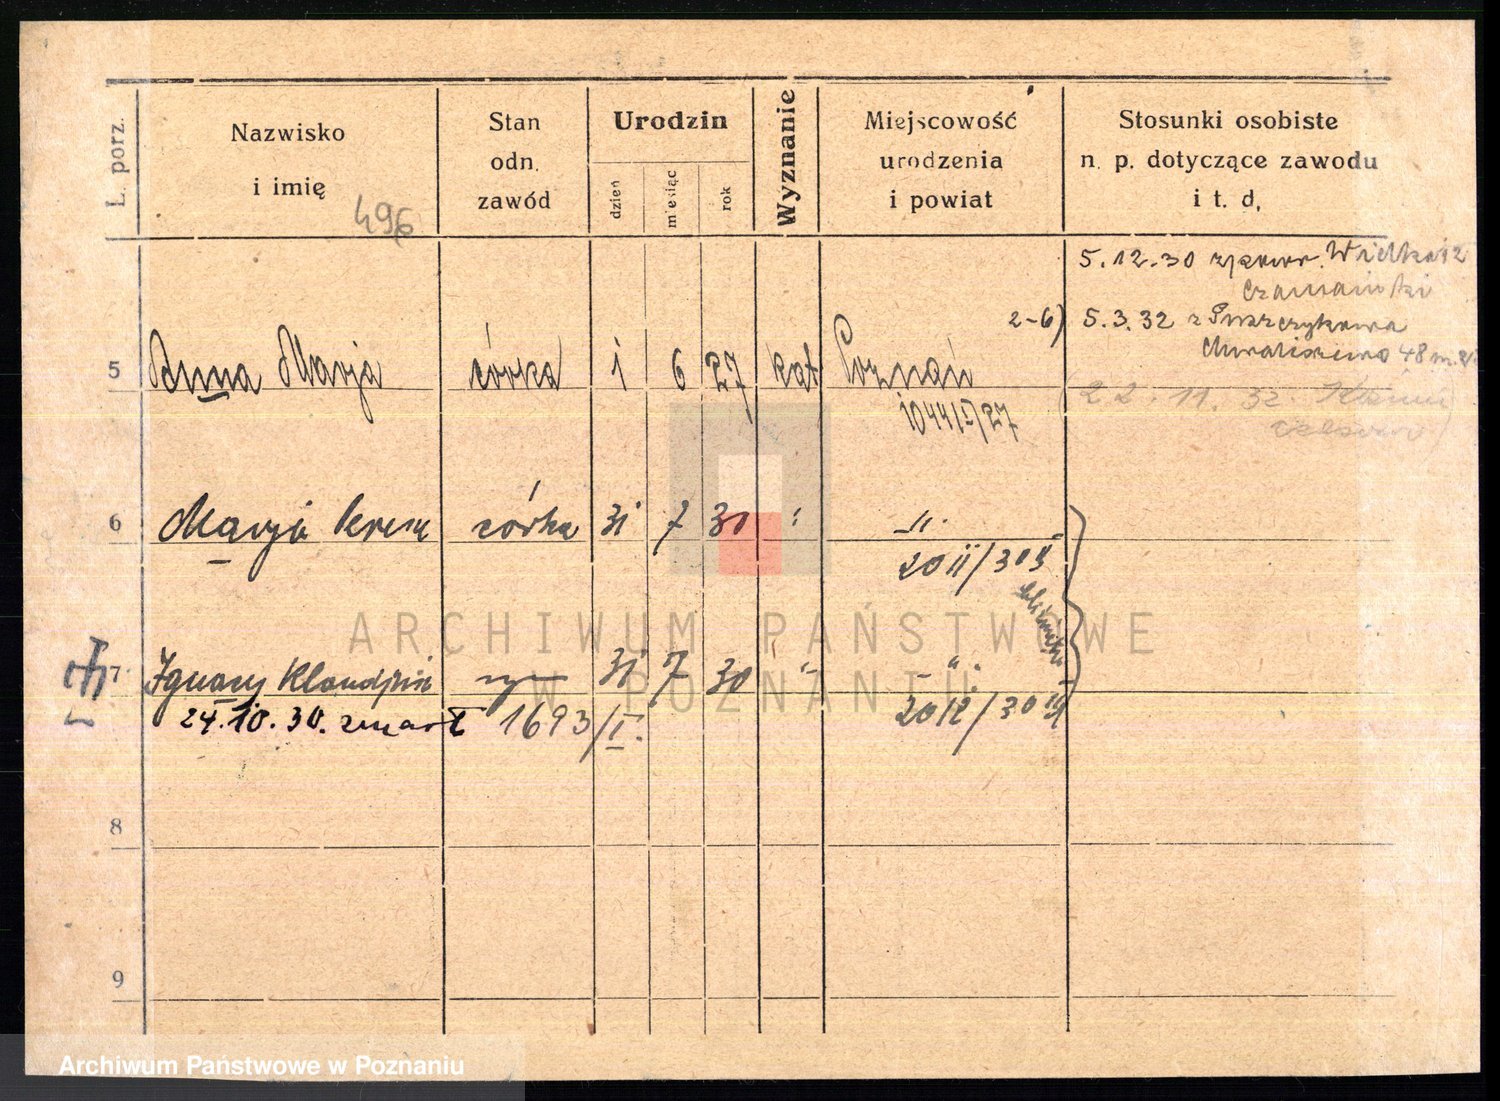 L. porz.
Nazwisko
i imię
496
Stan
odn.
zawód
Urodzin
dzień
miesiąc
rok
Wyznanie
Miejscowość
urodzenia
i powiat
Stosunki osobiste
n. p. dotyczące zawodu
i t. d.
5.12.30
2-6) 5.3.32 z Puszczykowa
5 Anna Marja córka 1 6 27 kat Poznań
48 m.
22.11.32.
1044/I/27
6 Marja córka 31 7 30 " -"-
2011/30
ARCHIWUM PAŃSTWOWE
W POZNANIU
7 Ignacy syn 31 7 30 " - " -
24.10.30. zmarł 1693/I.
2012/30
8
9
Archiwum Państwowe w Poznaniu